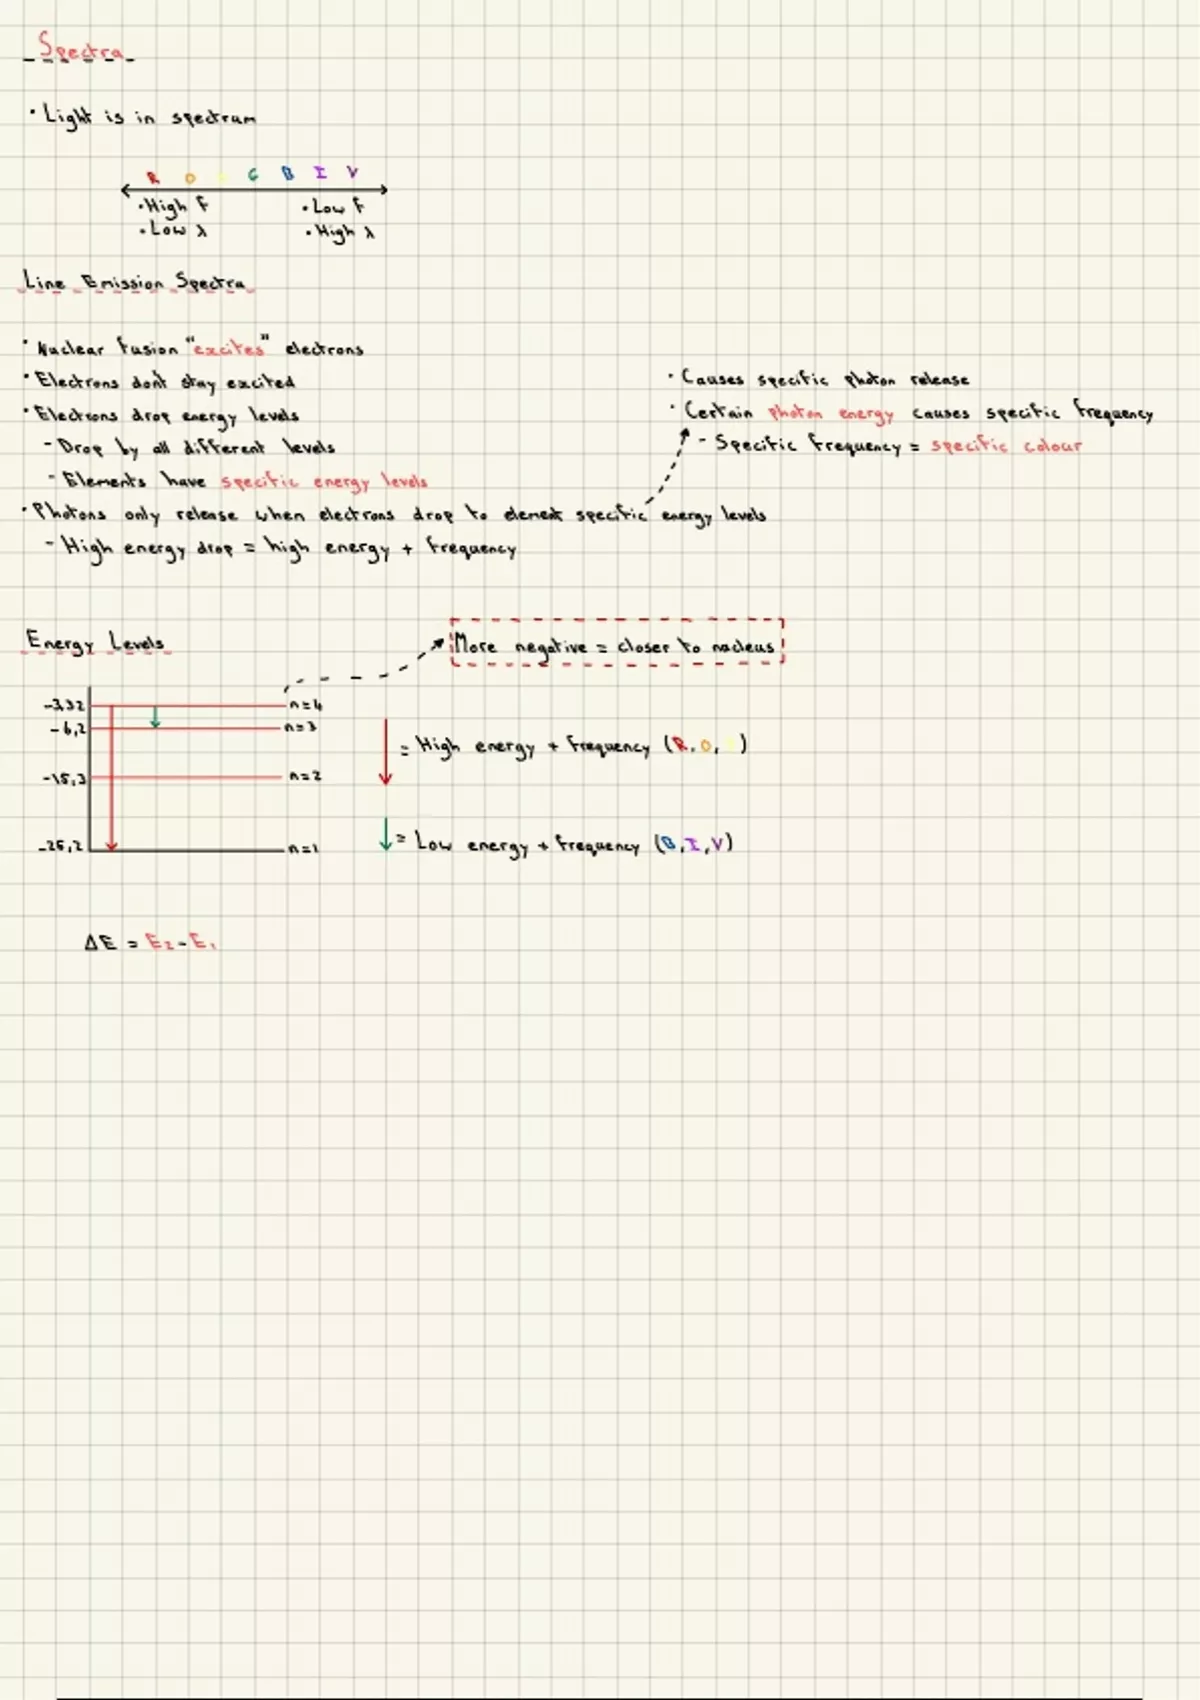 Spectra
• Light is in spectrum
R O Y G B I V
• High f • Low f
• Low λ • High λ
Line Emission Spectra
• Nuclear fusion "excites" electrons
• Electrons dont stay excited
• Electrons drop energy levels
- Drop by all different levels
- Elements have specific energy levels
• Photons only release when electrons drop to element specific energy levels
- High energy drop = high energy + frequency
• Causes specific photon release
• Certain photon energy causes specific frequency
- Specific frequency = specific colour
Energy Levels
More negative = closer to nucleus
-3,32 n=4
-6,2 n=3
-15,3 n=2
-25,2 n=1
= High energy + frequency (R, O, Y)
= Low energy + frequency (B, I, V)
ΔE = E₂ - E₁